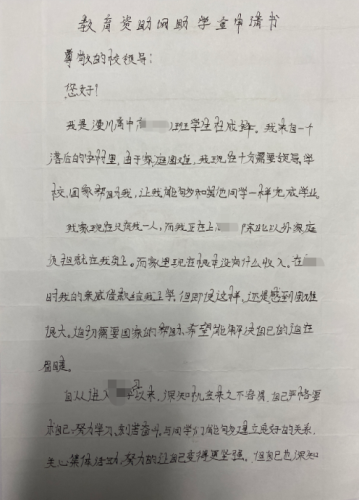 教育资助网助学金申请书
尊敬的校领导:
您好!
我是漫川高中高 班学生 成 。我来自一个
落后的农村里,由于家庭困难,我现在十分需要领导,学
校,国家帮助我,让我能够和其他同学一样完成学业。
我家现在只有我一人,而我正在上 除此以外家庭
重担就在我身上。而家里现在根本没有什么收入。在
时我的亲戚借款给我上学,但即使这样,还是感到困难
很大。迫切需要国家的帮助,希望能解决自己的
困境。
自从进入 以来,深知机会来之不容易,自己严格要
求自己,努力学习,刻苦奋斗,与同学们能够建立良好的关系,
关心集体活动,努力的让自己变得更坚强。但自己也深知